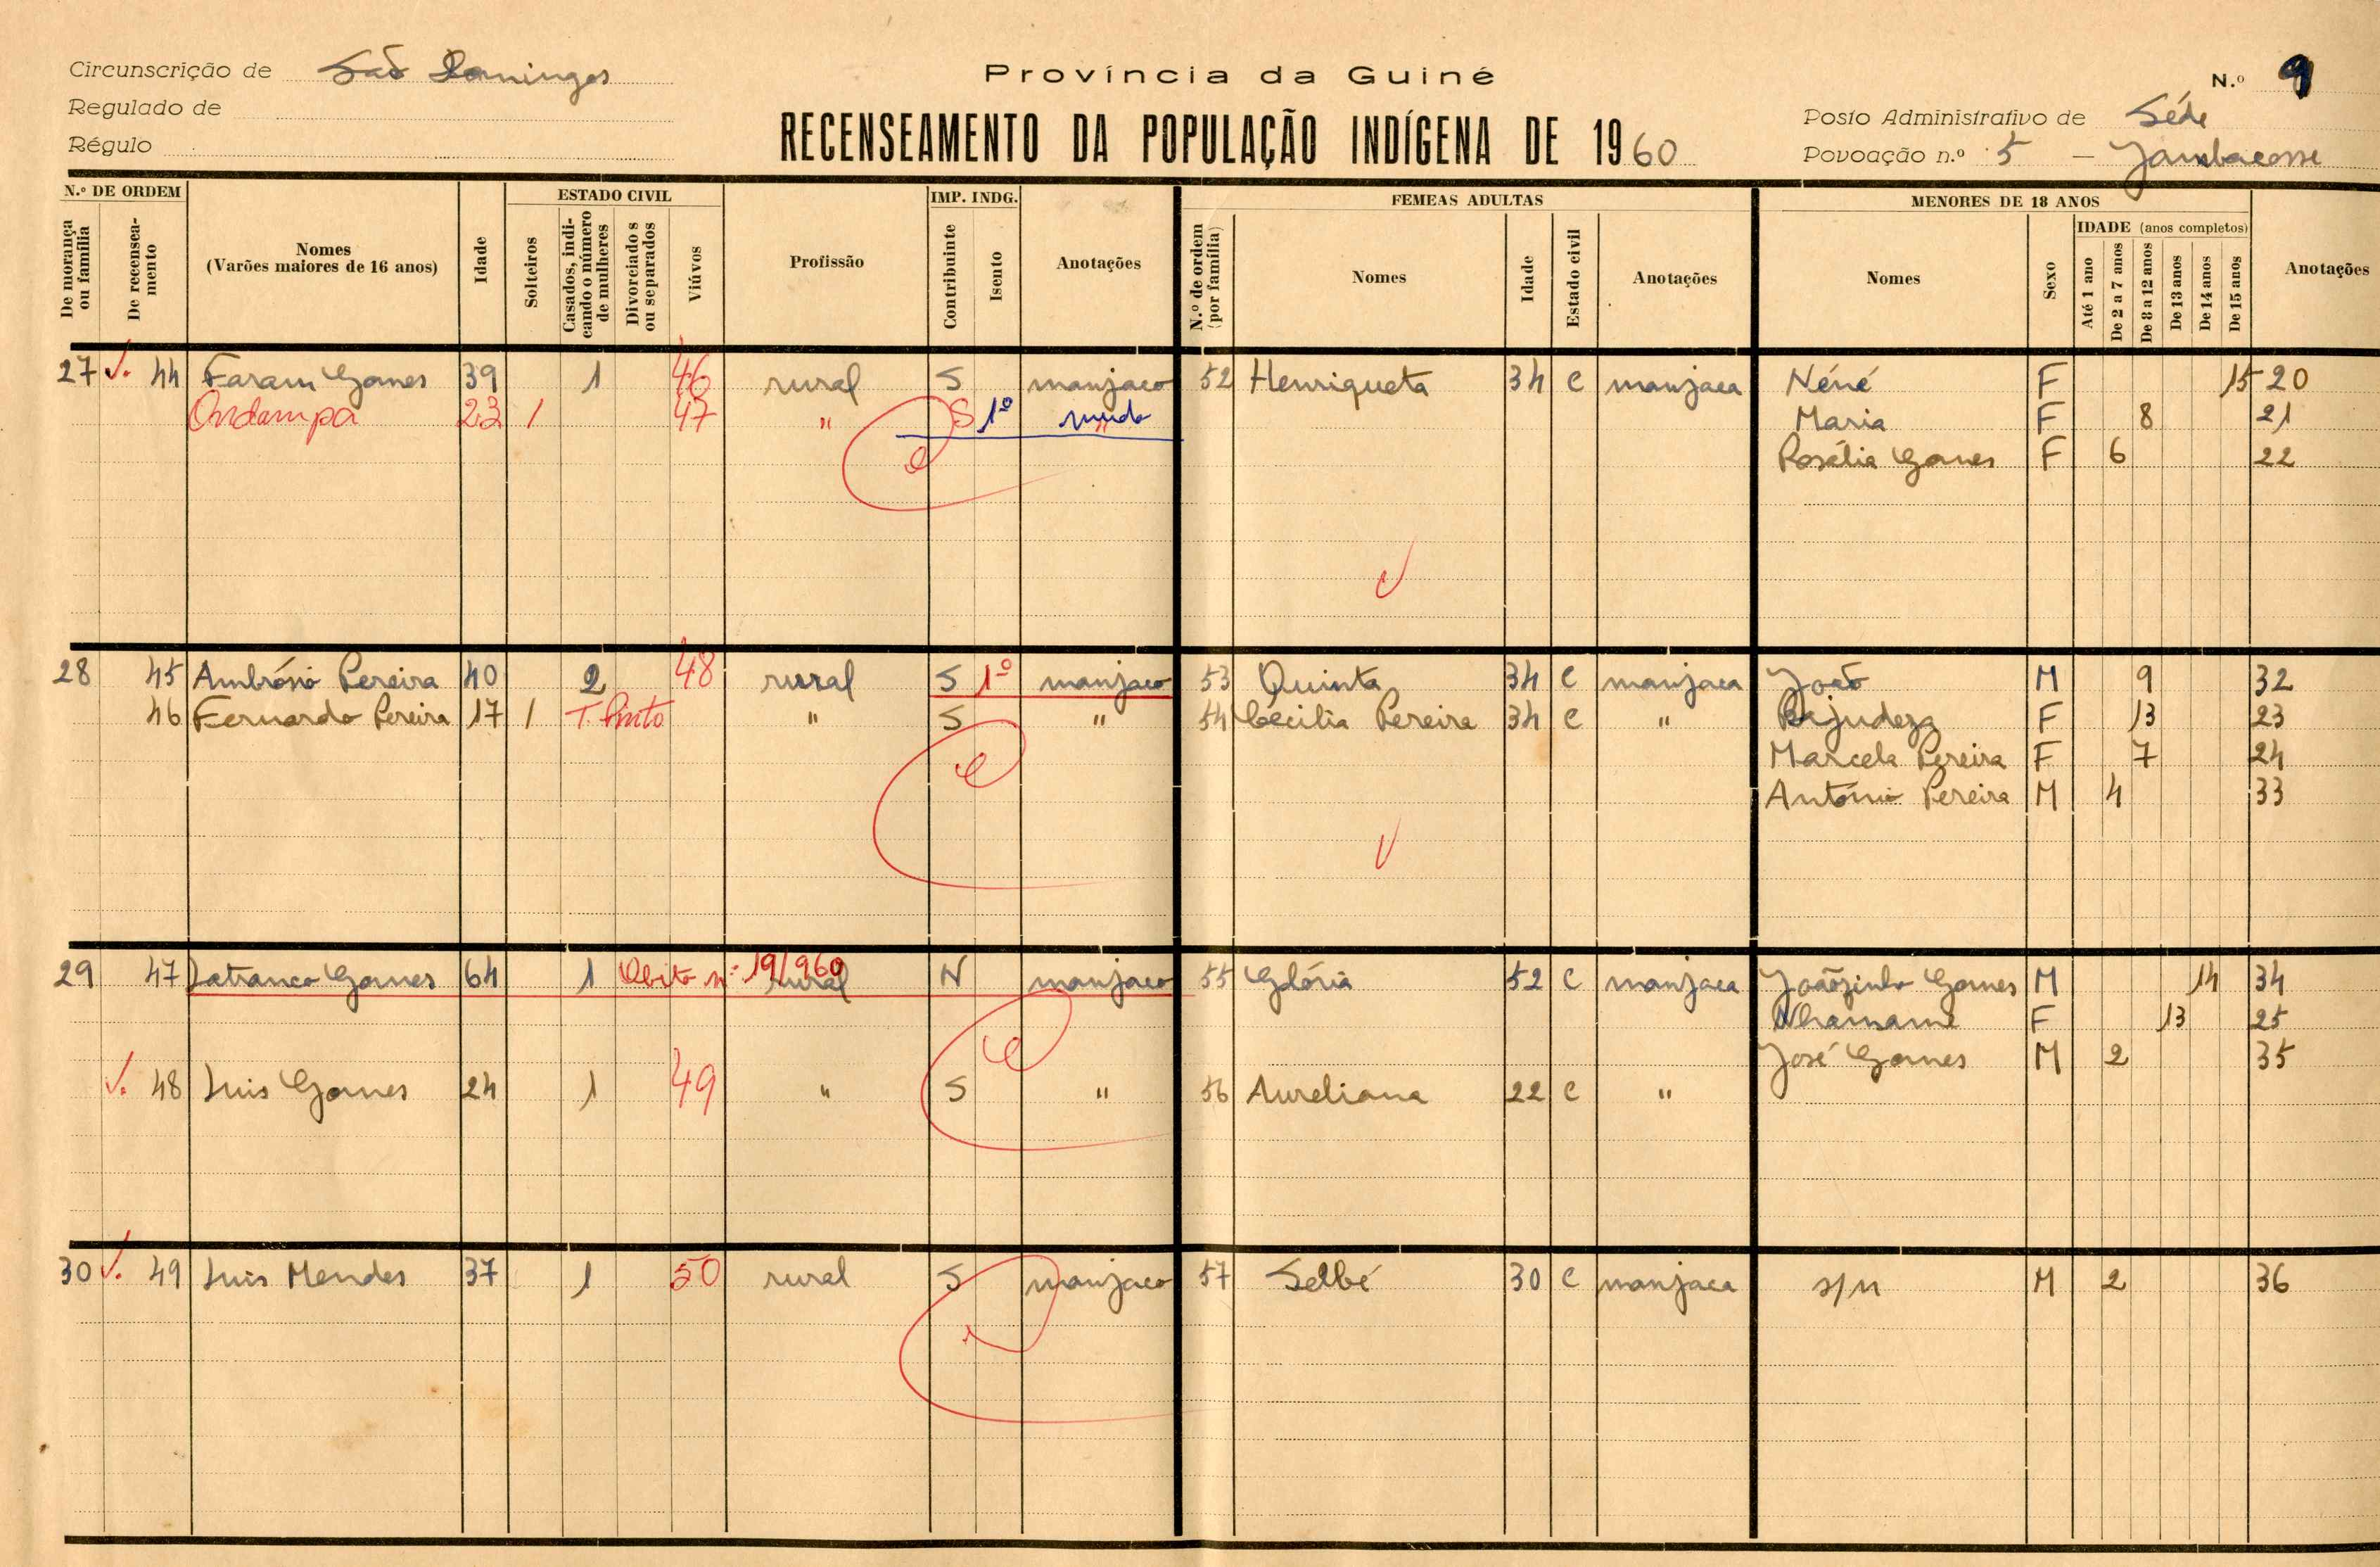 Circunscrição de São Domingos
Regulado de
Régulo
Província da Guiné
RECENSEAMENTO DA POPULAÇÃO INDÍGENA DE 1960
N.º 9
Posto Administrativo de Séde
Povoação n.º 5 —
N.º DE ORDEM
De morança ou família
De recenseamento
Nomes
(Varões maiores de 16 anos)
Idade
ESTADO CIVIL
Solteiros
Casados, indicando o número de mulheres
Divorciados ou separados
Viúvos
Profissão
IMP. INDG.
Contribuinte
Isento
Anotações
FEMEAS ADULTAS
N.º de ordem (por família)
Nomes
Idade
Estado civil
Anotações
MENORES DE 18 ANOS
Nomes
Sexo
IDADE (anos completos)
Até 1 ano
De 2 a 7 anos
De 8 a 12 anos
De 13 anos
De 14 anos
De 15 anos
Anotações
27 44 Faram Gomes 39 1 46 rural S manjaco 52 Henriqueta 34 C manjaca Néné F 15 20
Ondampa 23 1 47 " S 1º mudo Maria F 8 21
Rosália Gomes F 6 22
28 45 Ambrósio Pereira 40 2 48 rural S 1º manjaco 53 Quinta 34 C manjaca João M 9 32
46 Fernando Pereira 17 1 T. Pinto " S " 54 Cecilia Pereira 34 C " Bajudeza F 13 23
Marcela Pereira F 7 24
António Pereira M 4 33
29 47 Latranco Gomes 64 1 Obito n.º 19/960 rural N manjaco 55 Glória 52 C manjaca Joãozinho Gomes M 14 34
F 13 25
José Gomes M 2 35
48 Luis Gomes 24 1 49 " S " 56 Aureliana 22 C "
30 49 Luis Mendes 37 1 50 rural S manjaco 57 Selbé 30 C manjaca s/n M 2 36